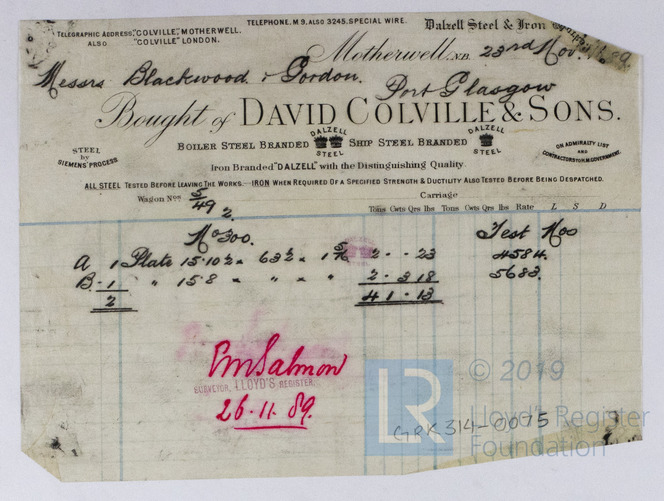 TELEPHONE, M.9, ALSO 3245, SPECIAL WIRE.
Dalzell Steel & Iron
TELEGRAPHIC ADDRESS, "COLVILLE", MOTHERWELL.
ALSO "COLVILLE" LONDON.
Motherwell, N.B. 23rd Nov. 1889
Messrs Blackwood & Gordon.
Port Glasgow
Bought of DAVID COLVILLE & SONS.
BOILER STEEL BRANDED DALZELL STEEL SHIP STEEL BRANDED DALZELL STEEL
STEEL by SIEMENS' PROCESS
ON ADMIRALTY LIST AND CONTRACTORS TO H.M. GOVERNMENT.
Iron Branded "DALZELL" with the Distinguishing Quality
ALL STEEL TESTED BEFORE LEAVING THE WORKS.—IRON WHEN REQUIRED OF A SPECIFIED STRENGTH & DUCTILITY ALSO TESTED BEFORE BEING DESPATCHED.
Wagon Nos 5/49 2. Carriage
Tons Cwts Qrs lbs Tons Cwts Qrs lbs Rate L S D
No 300. Test Nos
A 1 Plate 15.10½ × 63½ × 1 5/16 2 - - 23 4584.
B - 1 " 15.8 × " × " 2 - 3 18 5683.
2 4 1 - 13
E M Salmon
SURVEYOR, LLOYD'S REGISTER.
26.11.89.
LR © 2019
Lloyd's Register
Foundation
GRK 314-0075